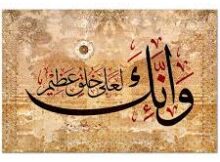 وَإِنَّكَ لَعَلَىٰ خُلُقٍ عَظِيمٍ